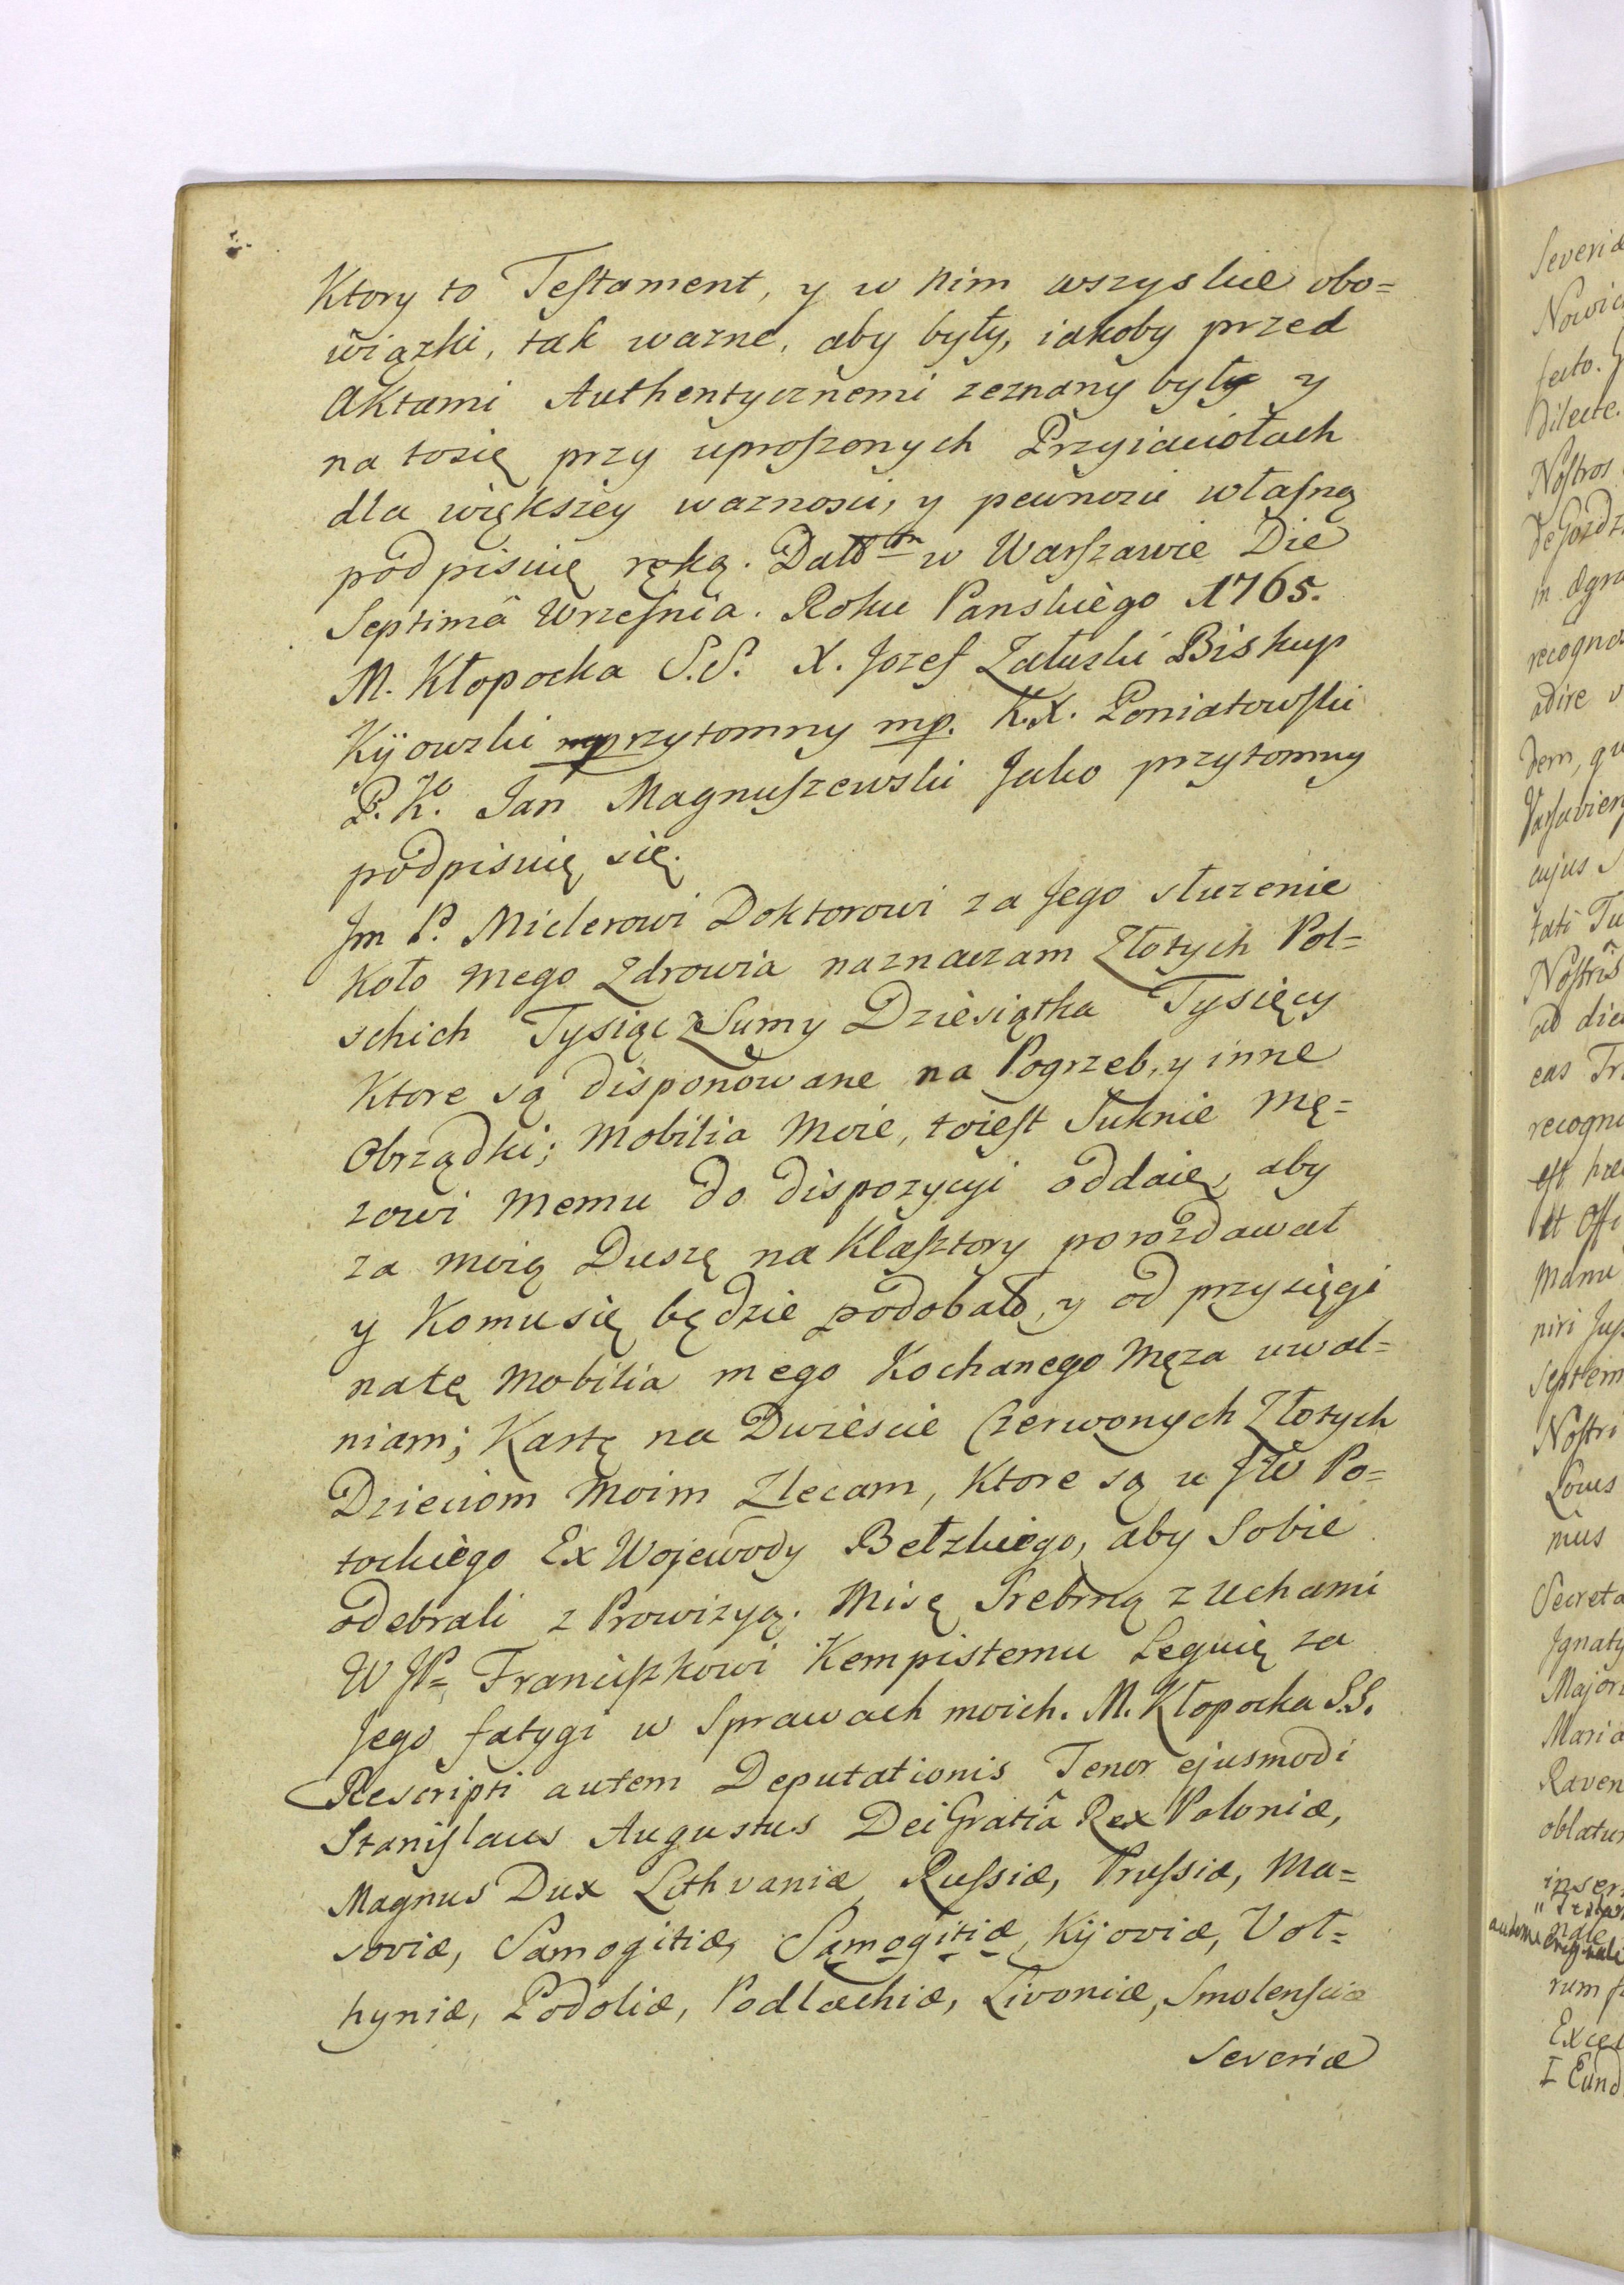 Ktory to Teſtament, y w nim wszyskie obo=
wiązki, tak wazne, aby były, iakoby przed
Aktami Authentycznemi zeznany były y
na tosię przy uproſzonych Przyiaciołach
dla większey waznosci, y pewnozci własną
podpisuię ręką. Datt tm w Warſzawie Die
Septimâ Wrzeſnia. Roku Panskiego 1765.
M. Kłopocka S.S. X. Jozef Załuski Biskup
Kijowzki przytomny mp. K.X. Poniatowſki
P. K. Jan Magnuſzewski Jako przytomny
podpisuię się.
Jm P. Miclerowi Doktorowi za Jego słuzenie
koło mego Zdrowia naznaczam Złotych Pol=
schich Tysiąc z Sumy Dziesiątka Tysięcy
Ktore są disponowane na Pogrzeb, y inne
Obrządki; Mobilia Moie, toieſt Suknie Mę=
zowi Memu do dispozycyi oddaię, aby
za moią Duszę na Klaſztory porozdawał
y Komusię będzie podobało, y od przysięgi
natę Mobilia mego Kochanego Męza uwal=
niam; Kartę na Dwiescie Czerwonych Złotych
Dzieciom Moim Zlecam, Ktore są u JW Po=
tockiego Ex Wojewody Bełzkiego, aby Sobie
odebrali z Prowizyą. Misę Srebrną z Uchami
W JP= Franciſzkowi Kempistemu Leguię za
Jego fatygi w Sprawach moich. M. Kłopocka S.S.
Rescripti autem Deputationis Tenor ejusmodi
Staniſlaus Augustus Dei Gratiâ Rex Poloniæ,
Magnus Dux Lithvaniæ, Ruſsiæ, Pruſsiæ, Ma=
soviæ, Samogitiæ, Samogitiæ, Kijoviæ, Vol=
hyniæ, Podoliæ, Podlachiæ, Livoniæ, Smolenſciæ
Severiæ